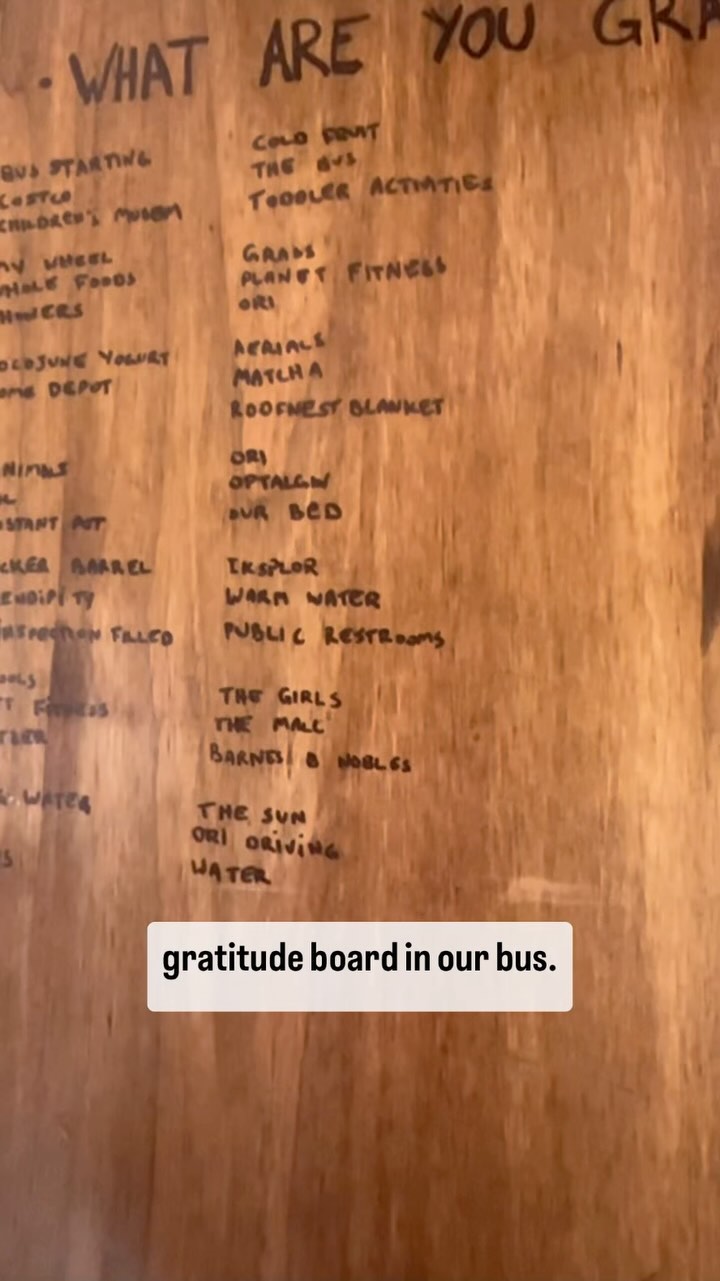 . WHAT ARE YOU GRA
BUS STARTING
COSTCO
CHILDREN'S MUSEM
WHEEL
WHOLE FOODS
YOGURT
DEPOT
BARREL
FILLED
WATER
COLD FRUIT
THE BUS
TODDLER ACTIVITIES
GRABS
PLANET FITNESS
ORI
AERIALS
MATCHA
ROOFNEST BLANKET
ORI
OPTALGIN
OUR BED
IKSPLOR
WARM WATER
PUBLIC RESTROOMS
THE GIRLS
THE MALL
BARNES & NOBLES
THE SUN
ORI DRIVING
WATER
gratitude board in our bus.